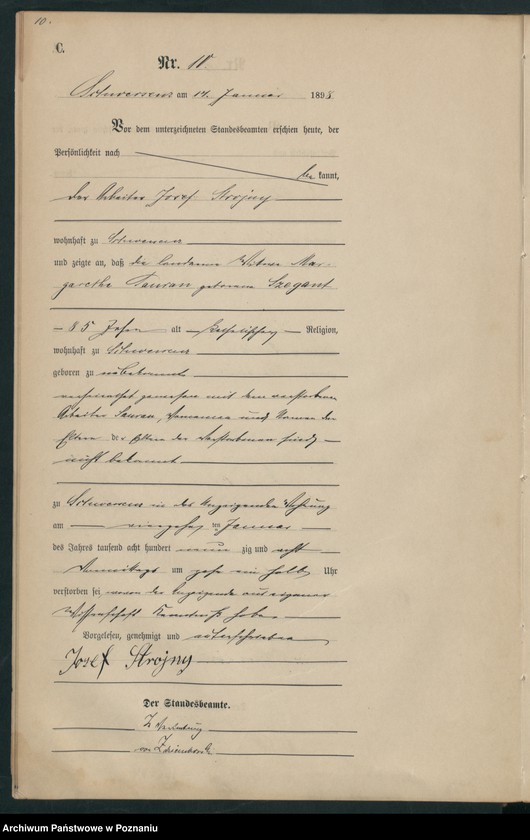 10.
C.
Nr. 11.
Schwersenz am 14. Januar 1898.
Vor dem unterzeichneten Standesbeamten erschien heute, der
Persönlichkeit nach
be kannt,
der Arbeiter Josef Strójny
wohnhaft zu Schwersenz
und zeigte an, daß die Wittwe Mar-
garetha Tauran geborene Szegant
85 Jahre alt katholischer Religion,
wohnhaft zu Schwersenz
geboren zu unbekannt
verheirathet gewesen mit dem verstorbenen
Arbeiter Tauran, Vornamen und Namen der
Eltern der Verstorbenen sind
nicht bekannt
zu Schwersenz in des Anzeigenden Wohnung
am vierzehn ten Januar
des Jahres tausend acht hundert neun zig und acht
Vormittags um zehn ein halb Uhr
verstorben sei, wovon der Anzeigende aus eigener
Wissenschaft Kenntniß habe.
Vorgelesen, genehmigt und unterschrieben
Josef Strójny
Der Standesbeamte.
In Vertretung
von
Archiwum Państwowe w Poznaniu